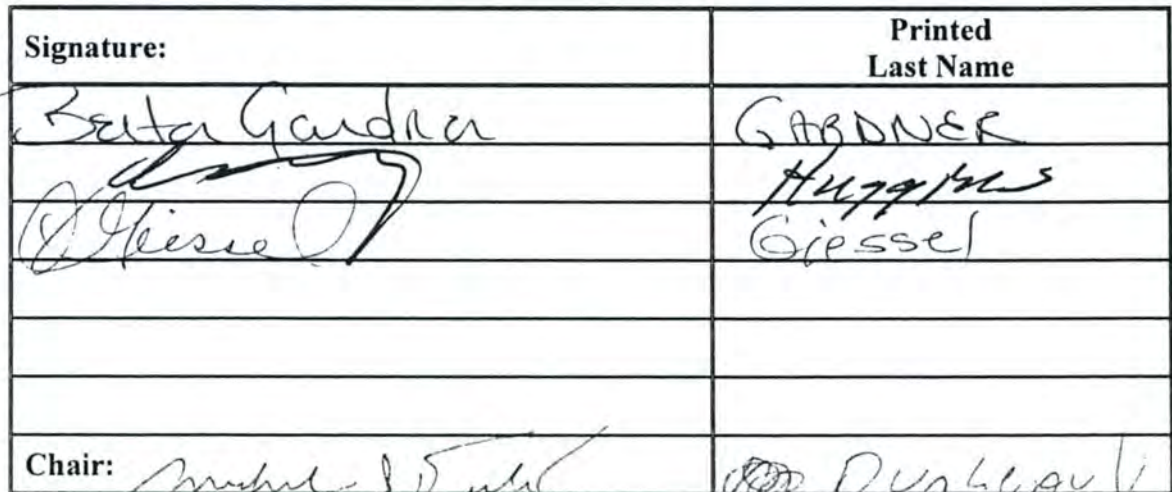 Signature: Printed
Last Name
Berta Gardner GARDNER
Huggins
Giessel Giessel
Chair: